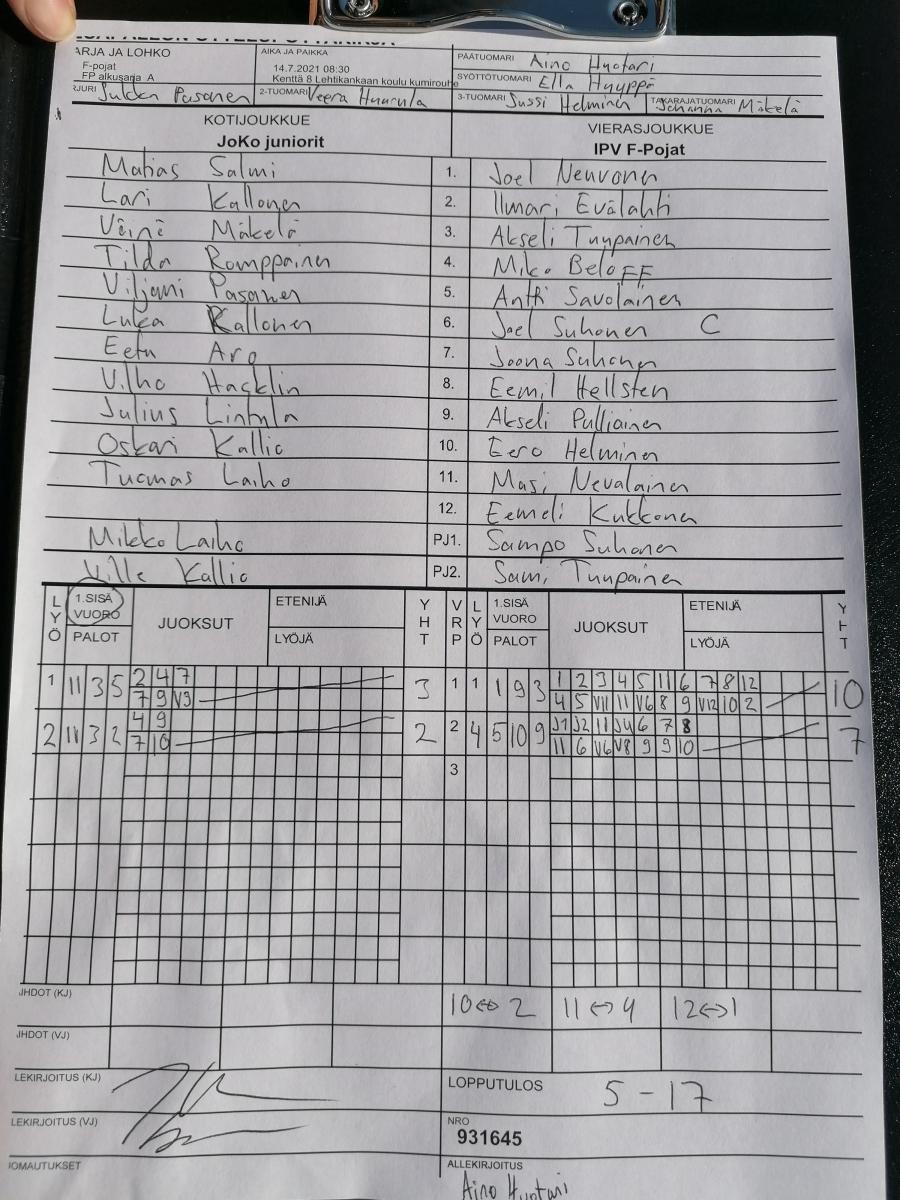 ARJA JA LOHKO
F-pojat
FP alkusarja A
AIKA JA PAIKKA
14.7.2021 08:30
Kenttä 8 Lehtikankaan koulu kumirouhe
PÄÄTUOMARI Aino Hyotari
SYÖTTÖTUOMARI Ella Huyppä
RJURI Jukka Pasanen 2-TUOMARI Veera Huurula 3-TUOMARI Jussi Helminen TAKARAJATUOMARI Johanna Mäkelä
KOTIJOUKKUE VIERASJOUKKUE
JoKo juniorit IPV F-Pojat
Matias Salmi 1. Joel Neuvonen
Lari Kallonen 2. Ilmari Evälahti
Väinö Mäkelä 3. Akseli Tuupainen
Tilda Romppainen 4. Miko Beloff
Viljami Pasanen 5. Antti Savolainen
Luka Kallonen 6. Joel Suhonen C
Eetu Aro 7. Joona Suhonen
Vilho Hacklin 8. Eemil Hellsten
Julius Lintula 9. Akseli Pulliainen
Oskari Kallio 10. Eero Helminen
Tuomas Laiho 11. Masi Nevalainen
12. Eemeli Kukkonen
Mikko Laiho PJ1. Sampo Suhonen
Ville Kallio PJ2. Sami Tuupainen
LYÖ 1.SISÄ VUORO PALOT JUOKSUT ETENIJÄ LYÖJÄ YHT VRP LYÖ 1.SISÄ VUORO PALOT JUOKSUT ETENIJÄ LYÖJÄ YHT
1 11 3 5 2 4 7 3 1 1 1 9 3 1 2 3 4 5 11 6 7 8 12 10
7 9 V3 4 5 V11 11 V6 8 9 V12 10 2
2 11 3 2 4 9 2 2 4 5 10 9 J1 J2 11 J4 6 7 8 7
7 10 11 6 V6 V8 9 9 10
3
IHDOT (KJ) 10↔2 11↔4 12↔1
IHDOT (VJ)
LEKIRJOITUS (KJ) LOPPUTULOS 5-17
LEKIRJOITUS (VJ) NRO
931645
IOMAUTUKSET ALLEKIRJOITUS
Aino Hyotari